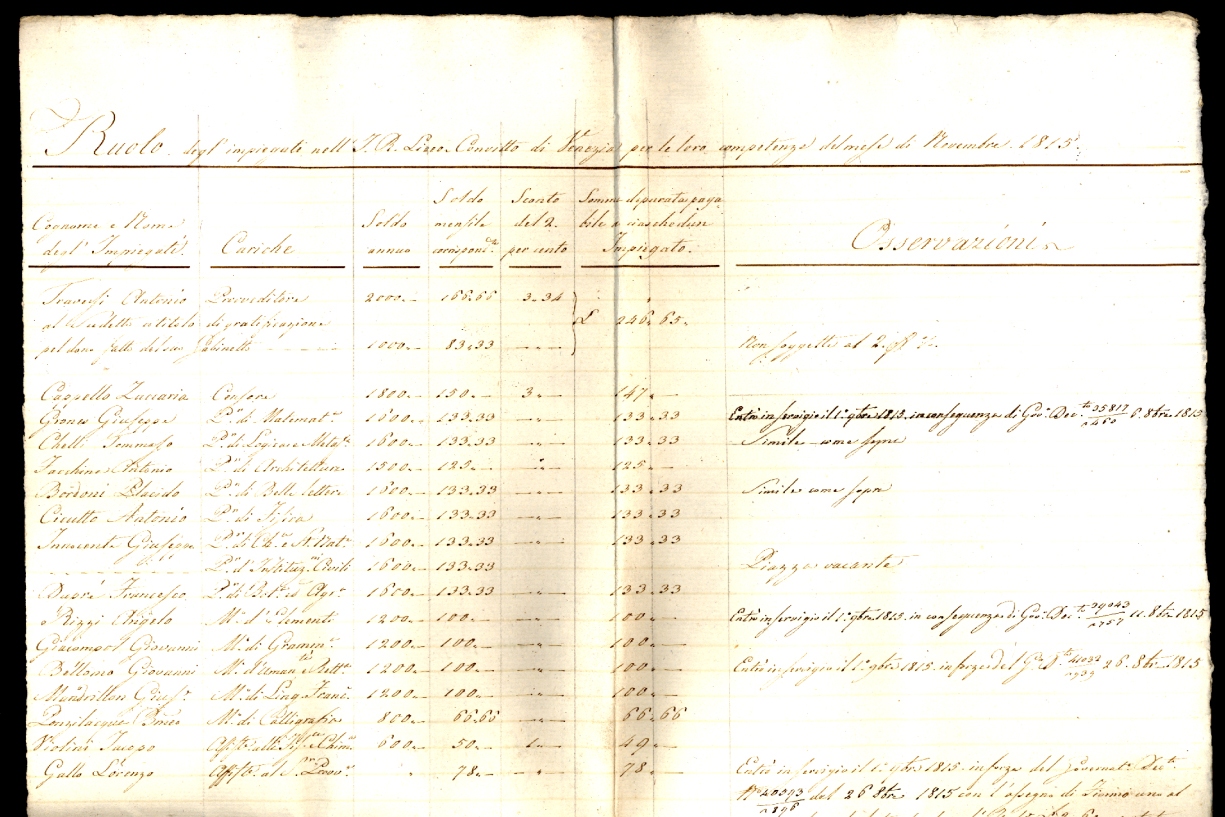 Ruolo degl' impiegati nell' I. R. Liceo Convitto di Venezia per le loro competenze del mese di Novembre 1815.
Cognome e Nome degl' Impiegati Cariche Soldo annuo Soldo mensile corrispond.te Sconto del 2 per cento Somma depurata pagabile a ciaschedun Impiegato Osservazioni
Traversi Antonio Proveditore 2000.— 166.66 3.34
al sudetto a titolo di gratificazione £ 246.65.
pel dono fatto del suo Gabinetto 1000.— 83.33 —.— Non soggetti al 2 p% .
Cappello Zuccaria Censore 1800.— 150.— 3.— 147.—
Grones Giuseppe P.re di Matemat.a 1600.— 133.33 —.— 133.33 Entrò in servigio il 1.° 9bre 1815. in conseguenza di Gov.o Dec.to 35817/2460 6. 8bre 1815
Tommaso P.re di Logica e Metaf.a 1600.— 133.33 —.— 133.33 Simile come sopra
Antonio P.re di Architettura 1500.— 125.— —.— 125.—
Bordoni Placido P.re di Belle lettere 1600.— 133.33 —.— 133.33 Simile come sopra
Cicutto Antonio P.re di Fisica 1600.— 133.33 —.— 133.33
Innocente Giuseppe P.re di Ch.a e St. Nat.e 1600.— 133.33 —.— 133.33
P.re d' Instituz.ni Civili 1600.— 133.33 Piazza vacante
Dupré Francesco P.re di Bot.ca ed Agr.a 1600.— 133.33 —.— 133.33
Rizzi Angelo M.o d' Elementi 1200.— 100.— —.— 100.— Entrò in servigio il 1.° 9bre 1815. in conseguenza di Gov.o Dec.to 39043/2757 11. 8bre 1815
Giacomol Giovanni M.o di Gramm.a 1200.— 100.— —.— 100.—
Bellomo Giovanni M.o d'Uman.tà e Rett.a 1200.— 100.— —.— 100.— Entrò in servigio il 1.° 9bre 1815. in forza del G.o D.to 26. 8bre 1815
Mandrillon Gius.e M.o di Ling. Franc.e 1200.— 100.— —.— 100.—
M.o di Calligrafia 800.— 66.66 —.— 66.66
Violini Jacopo Ass.te alla Fis.ca e Chim.a 600.— 50.— 1.— 49.—
Gallo Lorenzo Ass.te al S.r Prov.re 78.— —.— 78.— Entrò in servigio il 1.° 9bre 1815. in forza del Governat.o Dec.to
N.o 40393/2896 del 26 8bre 1815 con l' assegno di